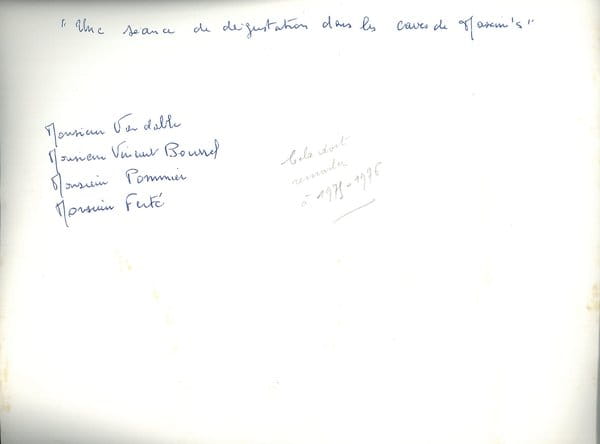 "Une séance de dégustation dans les caves de Maxim's"
Monsieur Vandable
Monsieur Vincent Bourrel
Monsieur Pommier
Monsieur Ferté
Cela doit
remonter
à 1975-1976